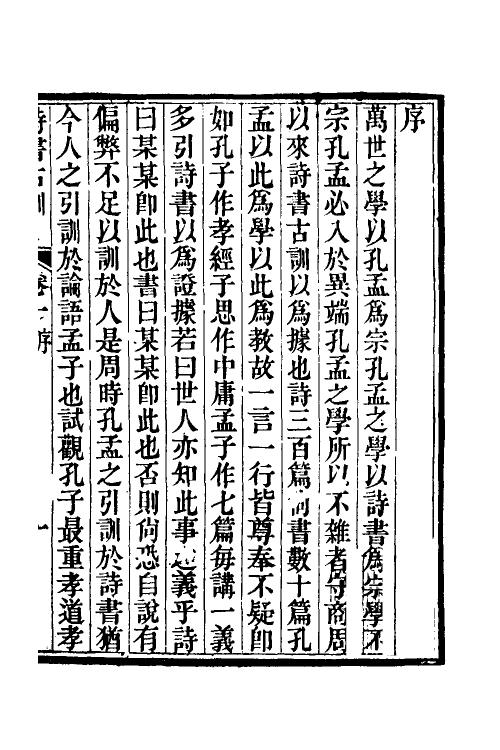 序
萬世之學以孔孟爲宗孔孟之學以詩書爲宗學不
宗孔孟必入於異端孔孟之學所以不雜者守商周
以來詩書古訓以爲據也詩三百篇尚書數十篇孔
孟以此爲學以此爲教故一言一行皆尊奉不疑卽
如孔子作孝經子思作中庸孟子作七篇毎講一義
多引詩書以爲證據若曰世人亦知此事之義乎詩
曰某某卽此也書曰某某卽此也否則尙恐自說有
偏弊不足以訓於人是周時孔孟之引訓於詩書猶
今人之引訓於論語孟子也試觀孔子最重孝道孝
詩書古訓 卷一序 一